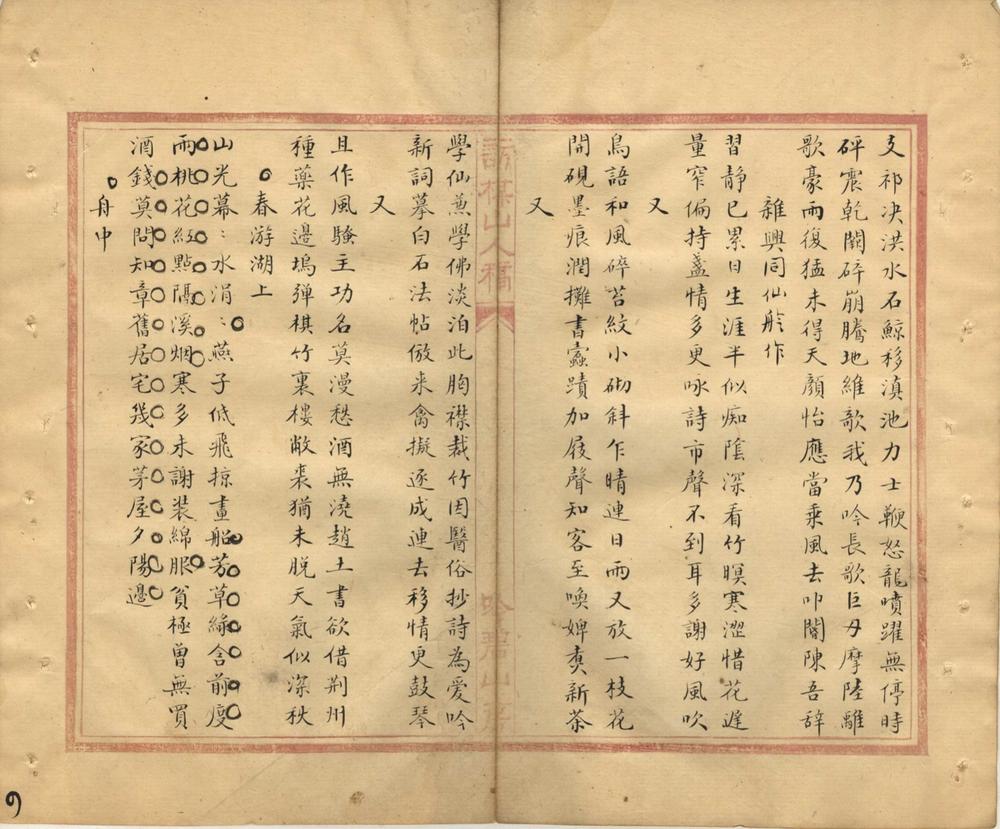 支祁决洪水石鯨移滇池力士鞭怒龍噴躍無停時
砰震乾關碎崩騰地維歌我乃吟長歌巨刃摩陸離
歌豪雨復猛未得天顏怡應當乘風去叩閽陳吾辞
雜興同仙舲作
習静已累日生涯半似痴陰深看竹暝寒澀惜花遲
量窄偏持盞情多更咏詩市聲不到耳多謝好風吹
又
鳥語和風碎苔紋小砌斜乍晴連日雨又放一枝花
開硯墨痕潤攤書蠹蹟加屐聲知客至喚婢煑新茶
又
吟碧山房
學仙蕙學佛淡泊此胸襟裁竹因醫俗抄詩為愛吟
新詞摹白石法帖倣来禽擬逐成連去移情更鼓琴
又
且作風騷主功名莫漫愁酒無澆趙土書欲借荆州
種藥花邊塢弹棋竹裏樓敝裘猶未脱天氣似深秋
春游湖上
山光幕〻水涓〻燕子低飛掠畫船芳草緑含前度
雨桃花紅點隔溪烟寒多未謝装綿服貧極曾無買
酒錢莫問知章舊居宅幾家茅屋夕陽邊
舟中
9